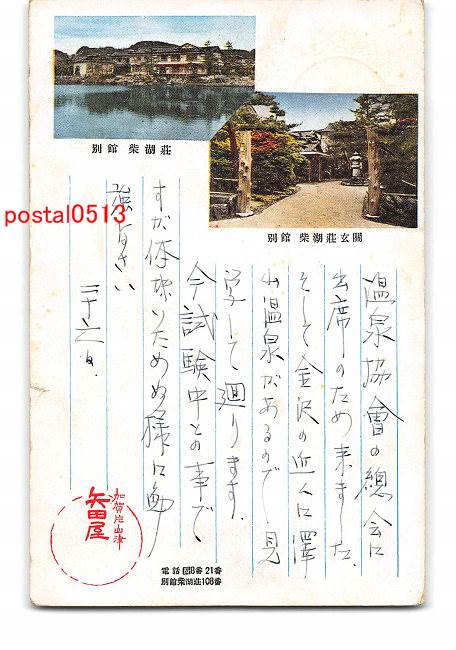 別館 柴湖荘
別館 柴湖荘玄関
温泉協會の總会に
出席のため来ました
そして金沢の近くに澤
山温泉があるので見
学して廻ります.
今試験中との事で
すが体弱りためぬ様に勉
強なさい
二十六日.
加賀片山津
矢田屋
電話 8番 21番
別館柴湖荘108番
postal0513